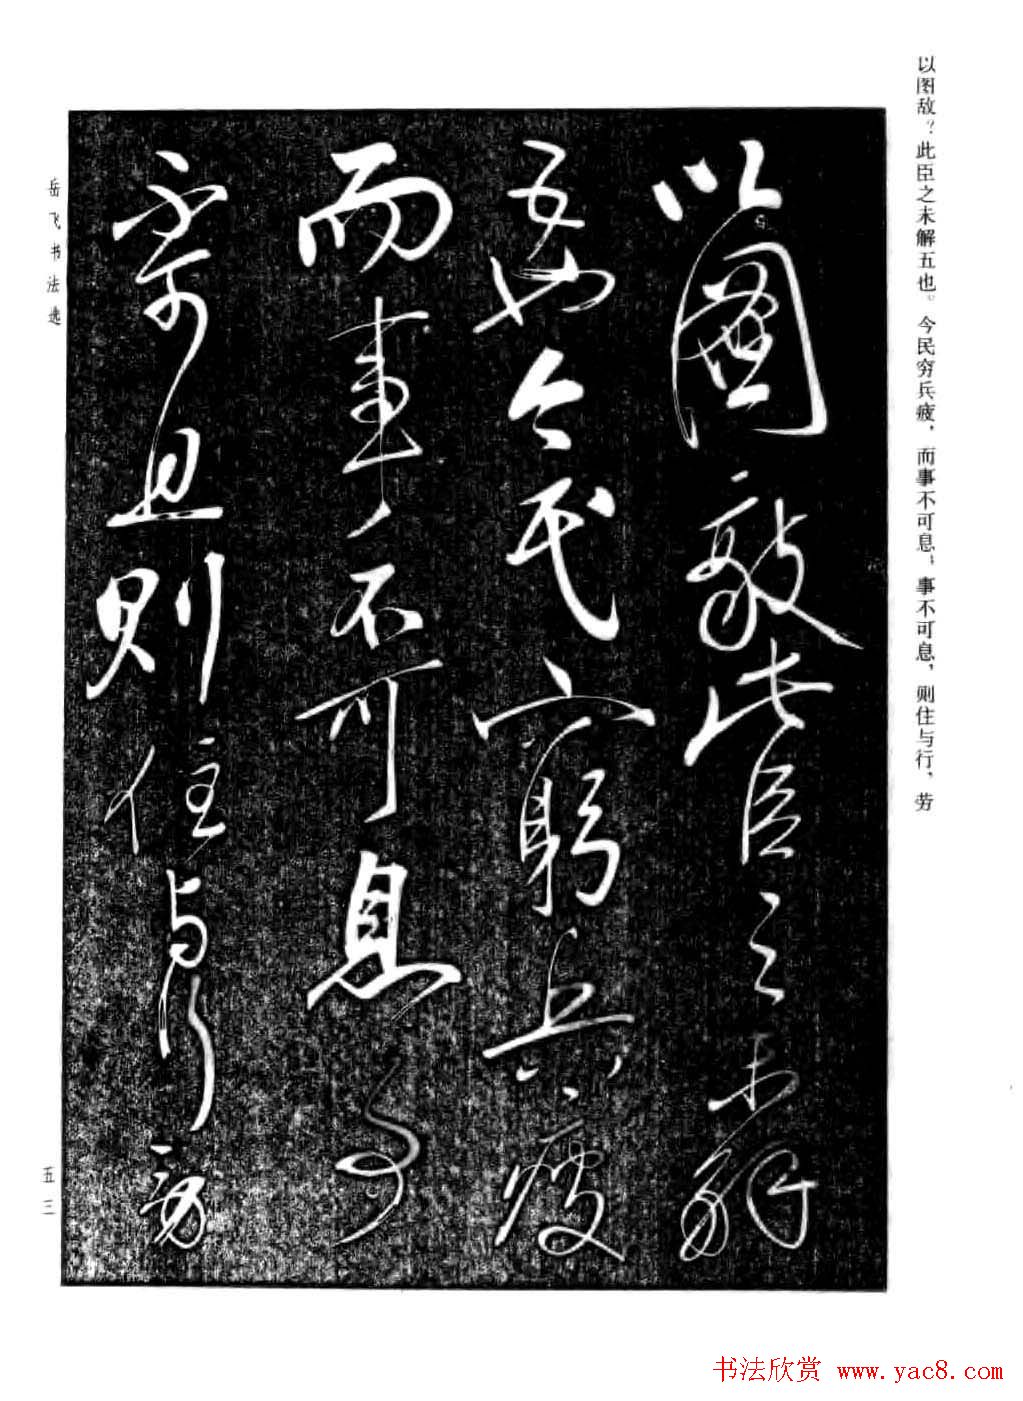 以图敌？此臣之未解五也。今民穷兵疲，而事不可息；事不可息，则住与行，劳
以圖敵此臣之未解
五也今民窮兵疲
而事不可息事
不可息則住与行勞
岳飞书法选
五三
书法欣赏 www.yac8.com